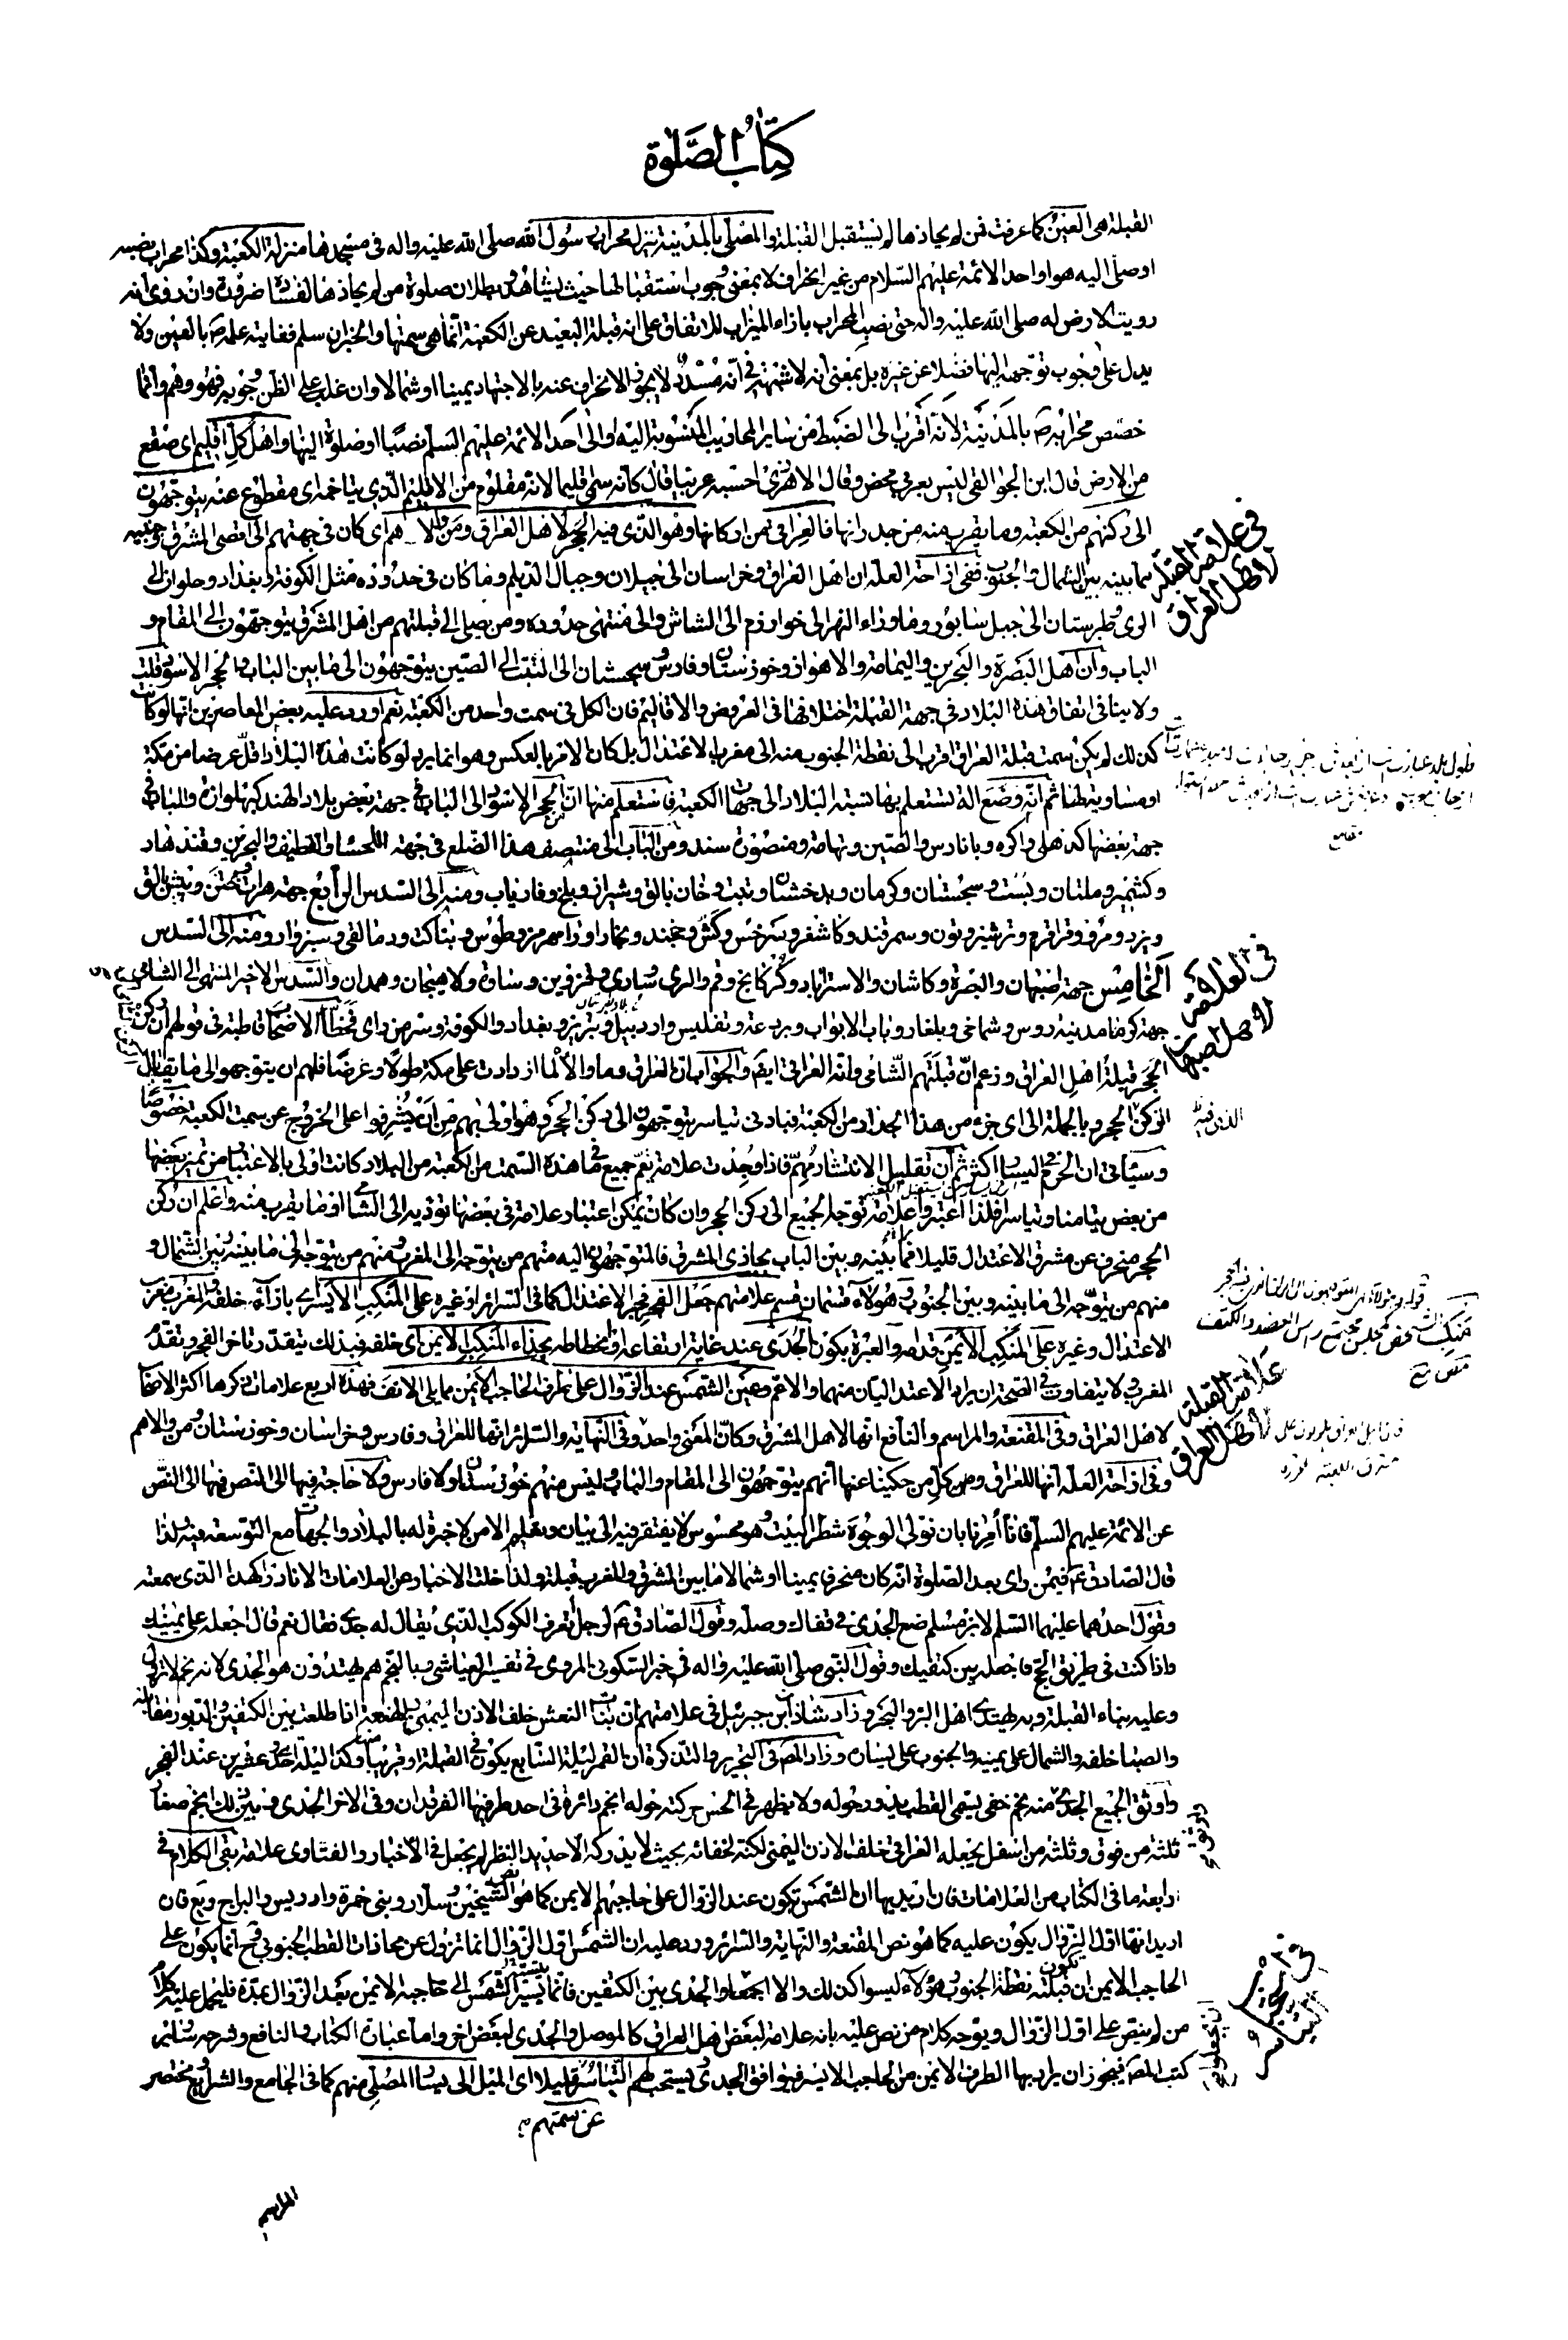 كتاب الصلوة
القبلة هي العين كما عرفت فمن لم يحاذها لم يستقبل القبلة والمصلي بالمدينة ينزل محراب رسول الله صلى الله عليه واله في مسجدها منزلة الكعبة وكذا محراب نصبه
او صلى اليه هو او احد الائمة عليهم السلام من غير انحراف لا بمعنى وجوب استقبالها حيث يشاهد وبطلان صلوة من لم يحاذها لفساده ضرورة وان روى انه
رويت الارض له صلى الله عليه واله حتى نصب المحراب بازاء الميزاب للاتفاق على ان قبلة البعيد عن الكعبة انما هي سمتها والخبر ان سلم فغايته علمه ص بالعين ولا
يدل على وجوب توجهه اليها فضلا عن غيره بل بمعنى انه لا شبهة في انه مسدد لا يجوز الانحراف عنه بالاجتهاد يمينا او شمالا وان غلب على الظن وجوبه فهو وهم وانما
خصص محرابه ص بالمدينة لانه اقرب الى الضبط من ساير المحاريب المنسوبة اليه او الى احد الائمة عليهم السلم نصبا او صلوة اليها واهل كل اقليم اى صقع
من الارض قال ابن الجواليقي ليس بعربي محض وقال الازهرى احسبه عربيا قال كانه سمى اقليما لانه مقلوم من الاقليم الذي يتاخمه اى مقطوع عنه يتوجهون
الى ركنهم من الكعبة وما يقرب منه من جدرانها فالعراقي لمن اركانها وهو الذى فيه الحجر لاهل العراق ومن والاهم اى كان في جهتهم الى اقصى المشرق وجنبيه
مما بينه بين الشمال والجنوب ففي ازاحة العلة ان اهل العراق وخراسان الى جيلان وجبال الديلم وما كان في حدوده مثل الكوفة وبغداد وحلوان الى
الرى وطبرستان الى جبل سابور وما وراء النهر الى خوارزم الى الشاش والى منتهى حدوده ومن يصلي الى قبلتهم من اهل المشرق يتوجهون الى المقام و
الباب وان اهل البصرة والبحرين واليمامة والاهواز وخوزستان وفارس وسجستان الى التبت الى الصين يتوجهون الى ما بين الباب والحجر الاسود قلت
ولا ينافى اتفاق هذه البلاد في جهة القبلة اختلافها في العروض والاقاليم فان الكل في سمت واحد من الكعبة نعم اورد عليه بعض المعاصرين انها لو كانت
كذلك لم يكن سمت قبلة العراق اقرب الى نقطة الجنوب منه الى مغرب الاعتدال بل كان الامر بالعكس وهو انما يرد لو كانت هذه البلاد اقل عرضا من مكة
او مساوية لها ثم انه وضع الة تستعلم بها نسبة البلاد الى جهات الكعبة فاستعلم منها ان من الحجر الاسود الى الباب في جهة بعض بلاد الهند كبهلوارة والباب في
جهة بعضها كدهلى واكره وبانارس والصين وتهامة ومنصورة سند ومن الباب الى منتصف هذا الضلع في جهة اللحسا والقطيف والبحرين وقندهار
وكشمير وملتان وبست وسجستان وكرمان وبدخشان وتبت وخان بالق وشيراز وبلخ وفارياب ومنه الى السدس الرابع جهة هراة وختن وبيش بالق
ويزد ومرو وقراقرم وترشيز وتون وسمرقند وكاشغر وسرخس وكش وخجند وبخارا ورامهرمز وطوس وبناكت ودمالقي وسبزوار ومنه الى السدس
الخامس جهة اصبهان والبصرة وكاشان والاستراباد وكركانج وقم والرى وسارى وقزوين وساوة ولاهيجان وهمدان والسدس الاخير المنتهى الى الشامى
جهة كوفا مدينة روس وشماخي وبلغار وباب الابواب وبردعة وتفليس واردبيل وتبريز وبغداد والكوفة وسر من راى فخطا الاصحاب قاطبة في قولهم ان ركن
الحجر قبلة اهل العراق وزعم ان قبلتهم الشامى وانه العراقي ايضا والجواب ان العراق وما والاه لما ازدادت على مكة طولا وعرضا فلهم ان يتوجهوا الى ما يقابل
الركن الحجر وبالجملة الى اى جزء من هذا الجدار من الكعبة فبادنى تياسر يتوجهون الى ركن الحجر وهو اولى بهم من ان يشرفوا على الخروج عن سمت الكعبة خصوصا
وسياتى ان الحرم في اليسار اكثر ثم ان تقليل الانتشار مهم فاذا وجدت علامة تعم جميع ما في هذه السمت من الكعبة من البلاد كانت اولى بالاعتبار من تميز بعضها
من بعض تيامنا وتياسرا فلذا اعتبروا علامة توجه الجميع الى ركن الحجر وان كان يمكن اعتبار علامة في بعضها تؤديه الى الشامى او ما يقرب منه واعلم ان ركن
الحجر منحرف عن مشرق الاعتدال قليلا فما بينه وبين الباب يحاذى المشرق فالمتوجهون اليه منهم من يتوجه الى المغرب ومنهم من يتوجه الى ما بينه بين الشمال و
منهم من يتوجه الى ما بينه وبين الجنوب وهؤلاء قسمان قسم علامتهم جعل الفجر فجر الاعتدال كما في السرائر او غيره على المنكب الايسر اى بازائه خلفه والمغرب مغرب
الاعتدال وغيره على المنكب الايمن قدامه والعبرة بكون الجدى عند غاية ارتفاعه وانحطاطه بحذاء المنكب الايمن اى خلفه فبذلك يتقدر تاخر الفجر وتقدم
المغرب ولا يتفاوت في الصحة ان يراد الاعتداليان منهما والاعم وعين الشمس عند الزوال على طرف الحاجب الايمن مما يلى الانف فهذه اربع علامات ذكرها اكثر الاصحاب
لاهل العراق وفي المقنعة والمراسم والنافع انها لاهل المشرق وكان المعنى واحد وفي النهاية والسرائر انها للعراق وفارس وخراسان وخوزستان ومن والاهم
وفي ازاحة العلة انها للعراق ومن كل من حكينا عنها انهم يتوجهون الى المقام والباب وليس منهم خوزستان ولا فارس ولا حاجة فيها الى النص فيها الى النص
عن الائمة عليهم السلم فانا امرنا بان نولى الوجوه شطر البيت وهو محسوس لا يفتقر فيه الى بيان وتعليم الا من لا خبرة له بالبلاد والجهات مع التوسعة فيه لذا
قال الصادق ع فيمن راى بعد الصلوة انه كان منحرفا يمينا او شمالا ما بين المشرق والمغرب قبلة ولذا خلت الاخبار عن العلامات الا نادرا كهذا الذى سمعته
وقول احدهما عليهما السلم لابن مسلم ضع الجدى في قفاك وصله وقول الصادق ع لرجل اتعرف الكوكب الذى يقال له جدى فقال نعم قال اجعله على يمينك
واذا كنت في طريق الحج فاجعله بين كتفيك وقول النبي صلى الله عليه واله في خبر السكوني المروى في تفسير العياشى وبالنجم هم يهتدون هو الجدى لانه نجم لا يزول
وعليه بناء القبلة وبه يهتدى اهل البر والبحر وزاد شاذان ابن جبرئيل في علامتهم ان بنات النعش خلف الاذن اليمنى والهنعة اذا طلعت بين الكتفين والدبور مقابله
والصبا خلفه والشمال على يمينه والجنوب على يساره وزاد المص في التحرير والتذكرة ان القمر ليلة السابع يكون في القبلة او قريبا منها وكذا ليلة احدى وعشرين عند الفجر
واوثق الجميع الجدى منه نجم خفى يسمى القطب يدور حوله ولا يظهر في الحس حركته حوله انجم دائرة في احد طرفيها الفرقدان وفي الاخر الجدى وبين ذلك انجم صغار
ثلثة من فوق وثلثة من اسفل يجعله العراقي خلف الاذن اليمنى لكنه لخفائه بحيث لا يدركه الا حديد النظر لم يجعل في الاخبار والفتاوى علامة بقى الكلام في
رابعة ما في الكتاب من العلامات فان اريد بها ان الشمس تكون عند الزوال على حاجبهم الايمن كما هو نص الشيخين وسلار وبنى حمزة وادريس والبراج وبع فان
اريد انها اول الزوال يكون عليه كما هو نص المقنعة والنهاية والسرائر ورد عليه ان الشمس اول الزوال انما تزول عن محاذات القطب الجنوبي فح انما يكون على
الحاجب الايمن ان تكون قبلته نقطة الجنوب وهؤلاء ليسوا كذلك والا اجتمعا والجدى بين الكتفين فانما تسير الشمس الى حاجبه الايمن بعد الزوال بمدة فليحمل عليه كلام
من لم ينص على اول الزوال ويتوجه كلام من نص عليه بانه علامة لبعض اهل العراق كالموصل والجدى لبعض اخر واما عبارة الكتاب والنافع وشرحه وساير
كتب المص فيجوز ان يراد بها الطرف الايمن من الحاجب الايسر فيوافق الجدى ويستحب لهم التياسر قليلا اى الميل الى يسار المصلى منهم كما في الجامع والشرايع ومختصر
عن سمتهم
المراسم
في علامة القبلة
لاهل العراق
في العلامة
لاهل اصبهان
علامة القبلة
لاهل العراق